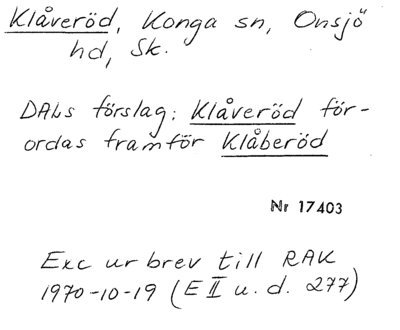 Klåveröd, Konga sn, Onsjö
hd, Sk.
DALs förslag: Klåveröd för-
ordas framför Klåberöd
Nr 17403
Exc ur brev till RAK
1970-10-19 (E II u. d. 277)